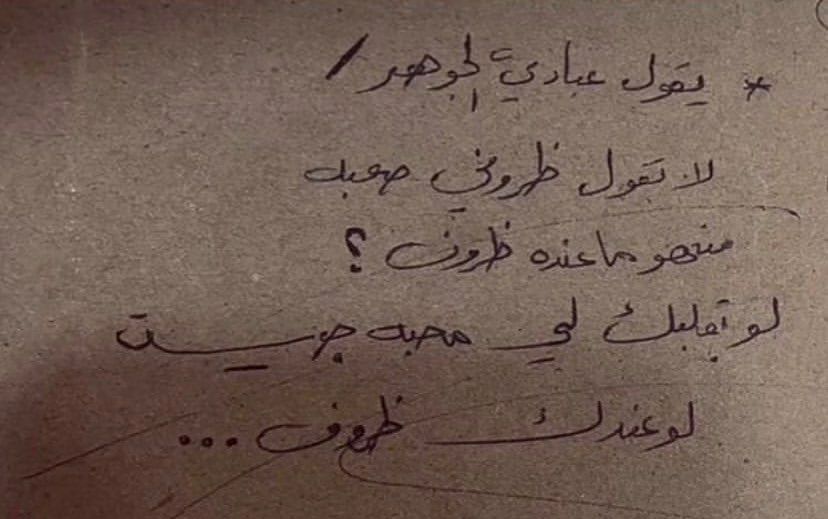 * يقول عبادي الجوهر /
لا تقول ظروفي صعبه
منهو ما عنده ظروف ؟
لو بقلبك لي محبه جيت
لو عندك ظروف ...